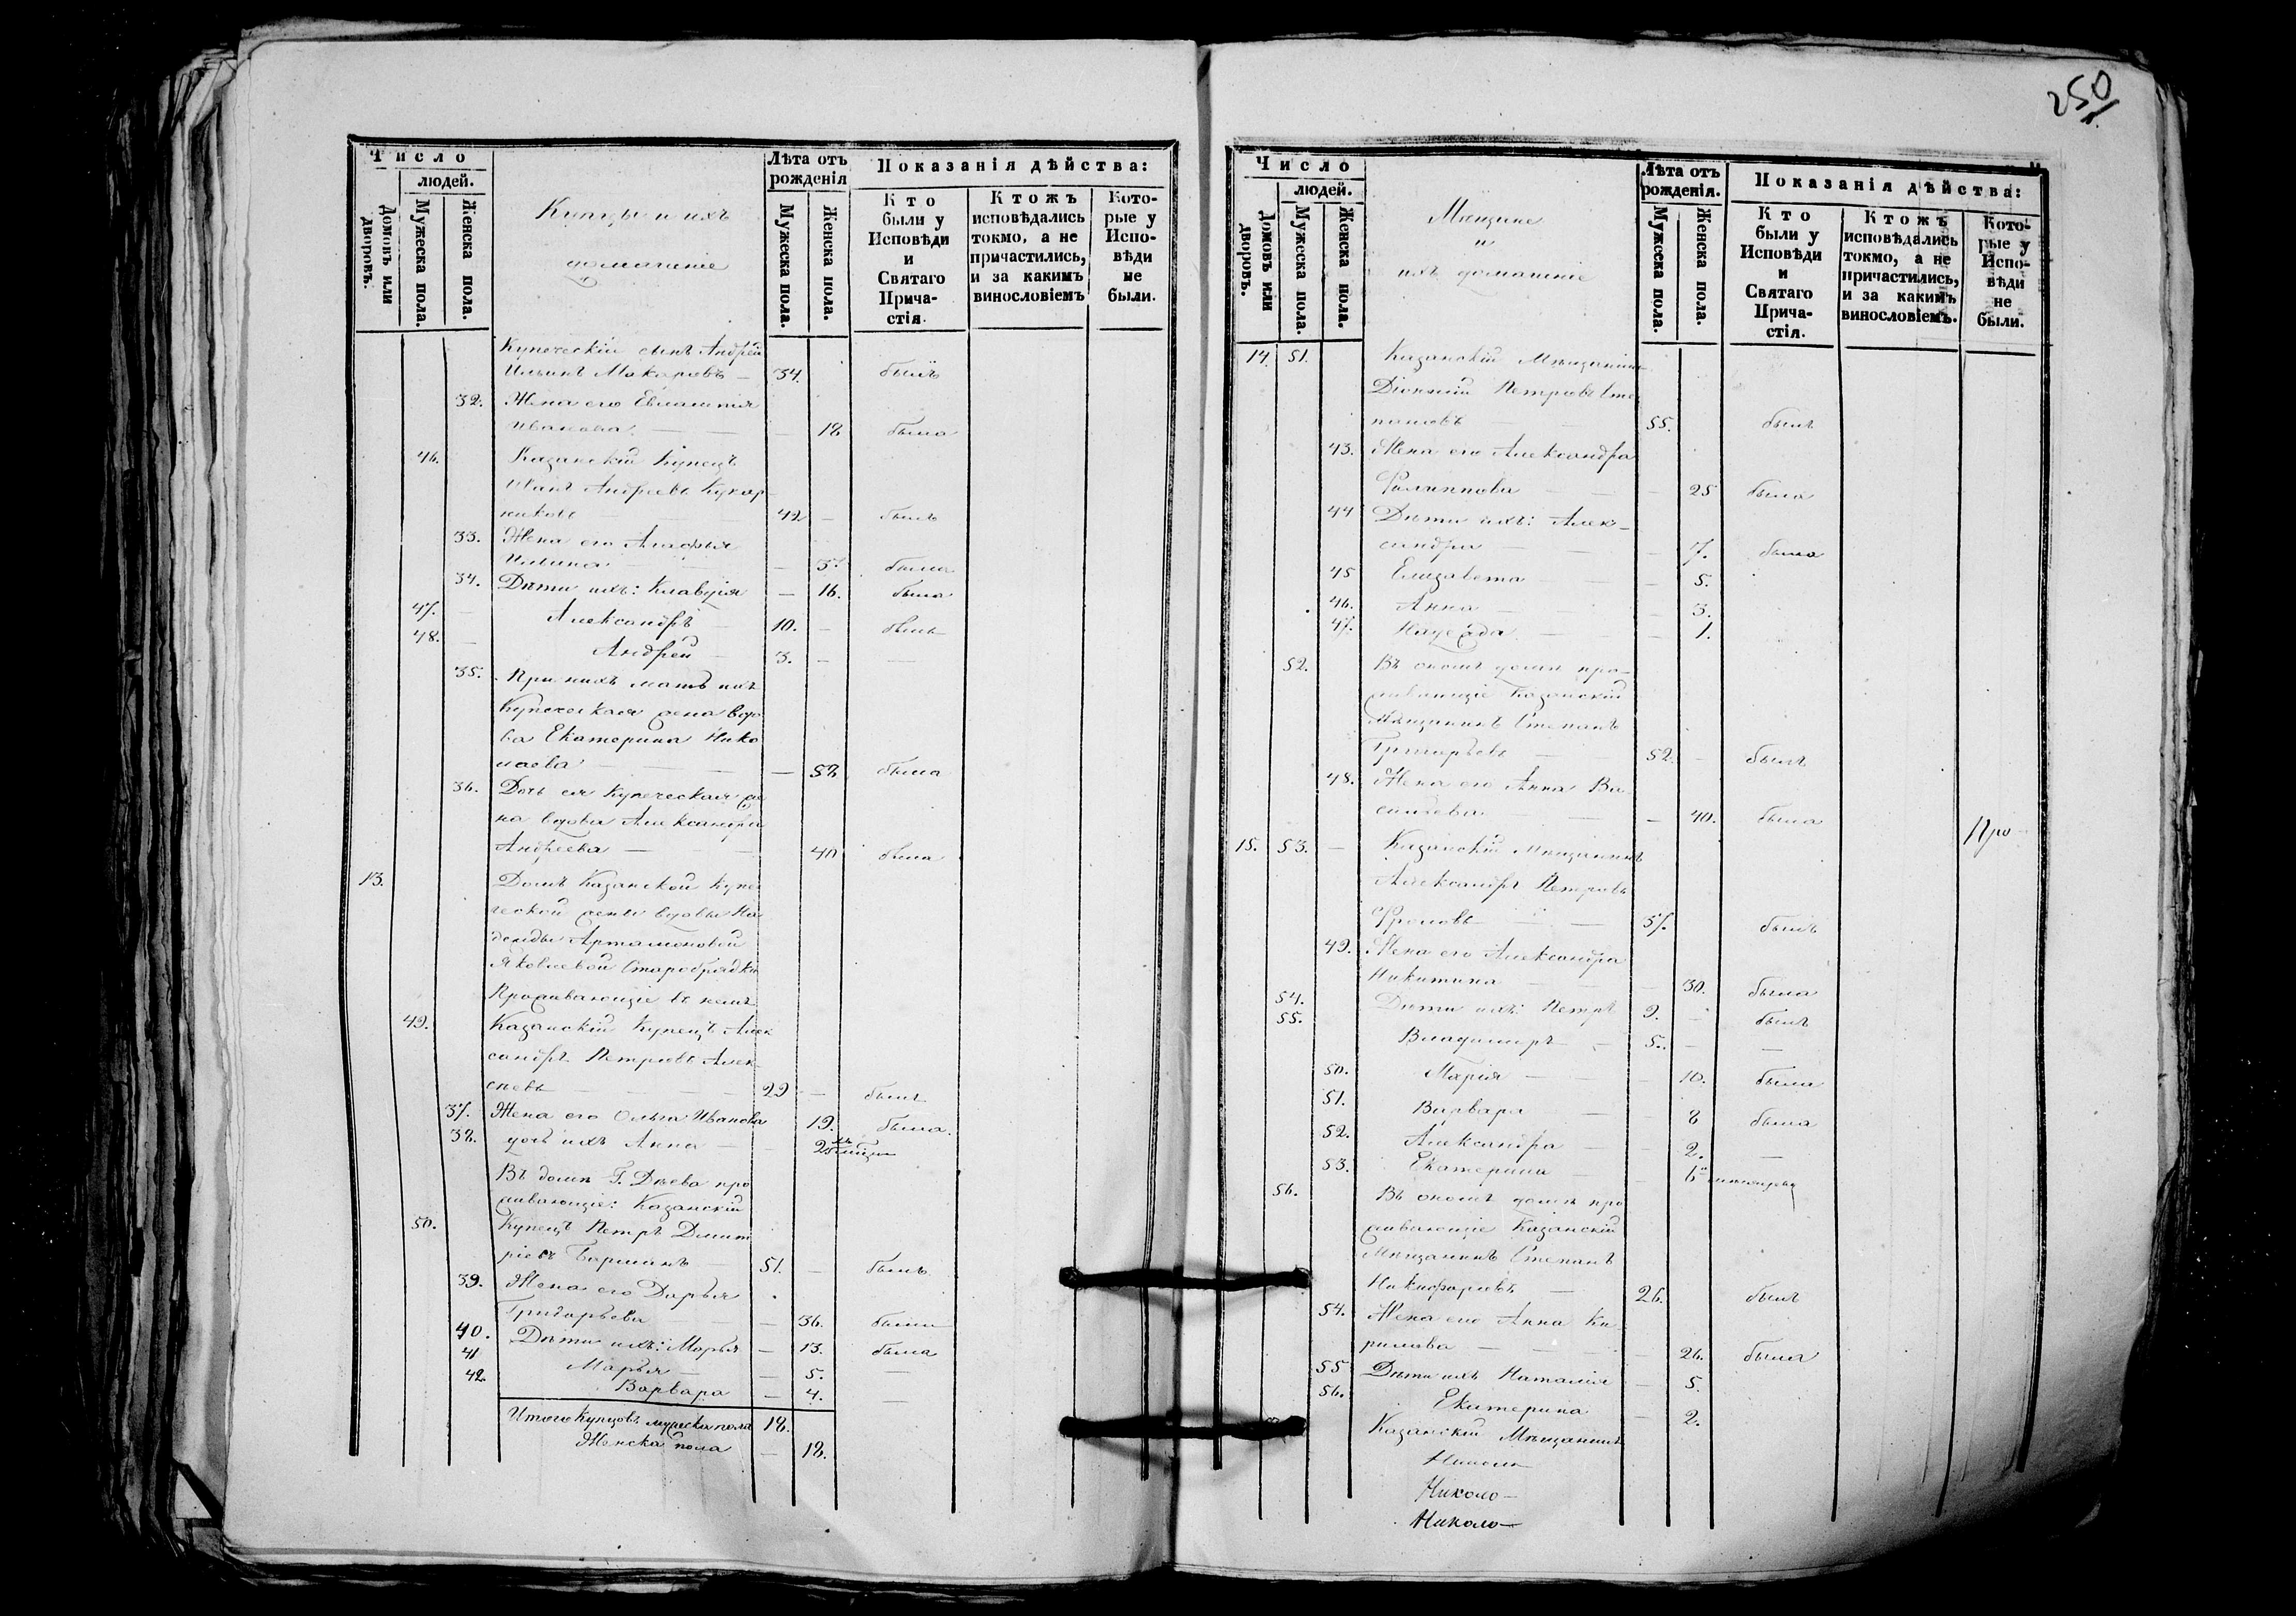 250
Число
людей.
Домовъ или дворовъ.
Мужеска пола.
Женска пола.
Купцы и ихъ
домашніе
Лѣта отъ рожденія
Мужеска пола.
Женска пола.
Показанія дѣйства:
Кто были у Исповѣди и Святаго Прича-стія.
Ктожъ исповѣдались токмо, а не причастились, и за какимъ винословіемъ
Кото-рые у Испо-вѣди не были.
Купеческій сынъ Андрей
Ильинъ Макаровъ — 34. былъ
32. Жена его Евлампія
Иванова — — — 18 была
46. Казанскій Купецъ
Иванъ Андреевъ Кукар-
никовъ — 42 — былъ
33. Жена его Агафья
Ильина — была
34. Дѣти ихъ: Клавдія — 16. была
47. — Александръ — 10. — былъ
48. — Андрей — 3. — —
35. При нихъ мать ихъ
Купеческая жена вдо
ва Екатерина Нико
лаева — — — 58 была
36. Дочь ея Купеческая же
на вдова Александра
Андреева — — 40 была
13. Домъ Казанской Купе
ческой жены вдовы На
дежды Артамоновой
Яковлевой Старобрядки
Проживающіе въ немъ
49. Казанскій Купецъ Алек
сандръ Петровъ Алек-
сѣевъ — — — 29 — былъ
37. Жена его Ольга Иванова 19. была.
38. дочь ихъ Анна — 2хъ
Въ домѣ Г. Дѣева про
живающіе: Казанскій
50. Купецъ Петръ Димит
ріевъ — 51. — былъ
39. Жена его Дарья
Григорьева — — 36. была
40. Дѣти ихъ: Марья — 13. была
41 Марья — — 5. —
42. Варвара — 4. —
Итого Купцовъ мужеска пола 18.
Женска пола — 18.
Число
людей.
Домовъ или дворовъ.
Мужеска пола.
Женска пола.
Мѣщане
и
ихъ домашніе
Лѣта отъ рожденія.
Мужеска пола.
Женска пола.
Показанія дѣйства:
Кто были у Исповѣди и Святаго Прича-стія.
Ктожъ исповѣдались токмо, а не причастились, и за какимъ винословіемъ.
Кото-рые у Испо-вѣди не были.
14. 51. Казанскій Мѣщанинъ
Діонисій Петровъ
55. былъ
43. Жена его Александра
Филиппова — — — 25 была
44 Дѣти ихъ: Алек-
сандра — — — 7. была
45 Елизавета — — 5.
46. Анна — — — 3.
47. Надежда — — 1.
52. Въ ономъ домѣ про-
живающіе Казанскій
Мѣщанинъ Степанъ
Григорьевъ — 52. — былъ
48. Жена его Анна Ва
сильева — — — 40. была
Про
15. 53. — Казанскій Мѣщанинъ
Александръ Петровъ
Фроловъ — — 37. былъ
49. Жена его Александра
Никитина — — — 30. была
54. Дѣти ихъ: Петръ 9. — былъ
55. Владиміръ — 5. — —
50. Марія — — — 10. была
51. Варвара — — 8 была
52. Александра — — 2. —
53. Екатерина — — 6
56. Въ ономъ домѣ про
живающіе Казанскій
Мѣщанинъ Степанъ
Никифоровъ — 26. былъ
54. Жена его Анна Ки
рилова — — — 26. была
55 Дѣти ихъ Наталія — 5.
56. Екатерина — 2.
Казанскій Мѣщанинъ
Николо—
Николо—